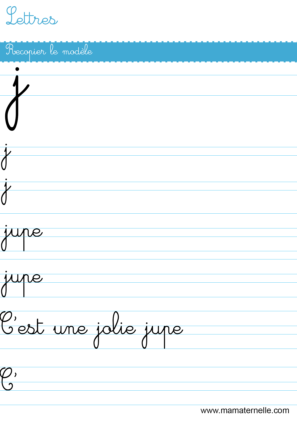 Lettres
Recopier le modèle
j
j
j
jupe
jupe
C'est une jolie jupe
C'
www.mamaternelle.com